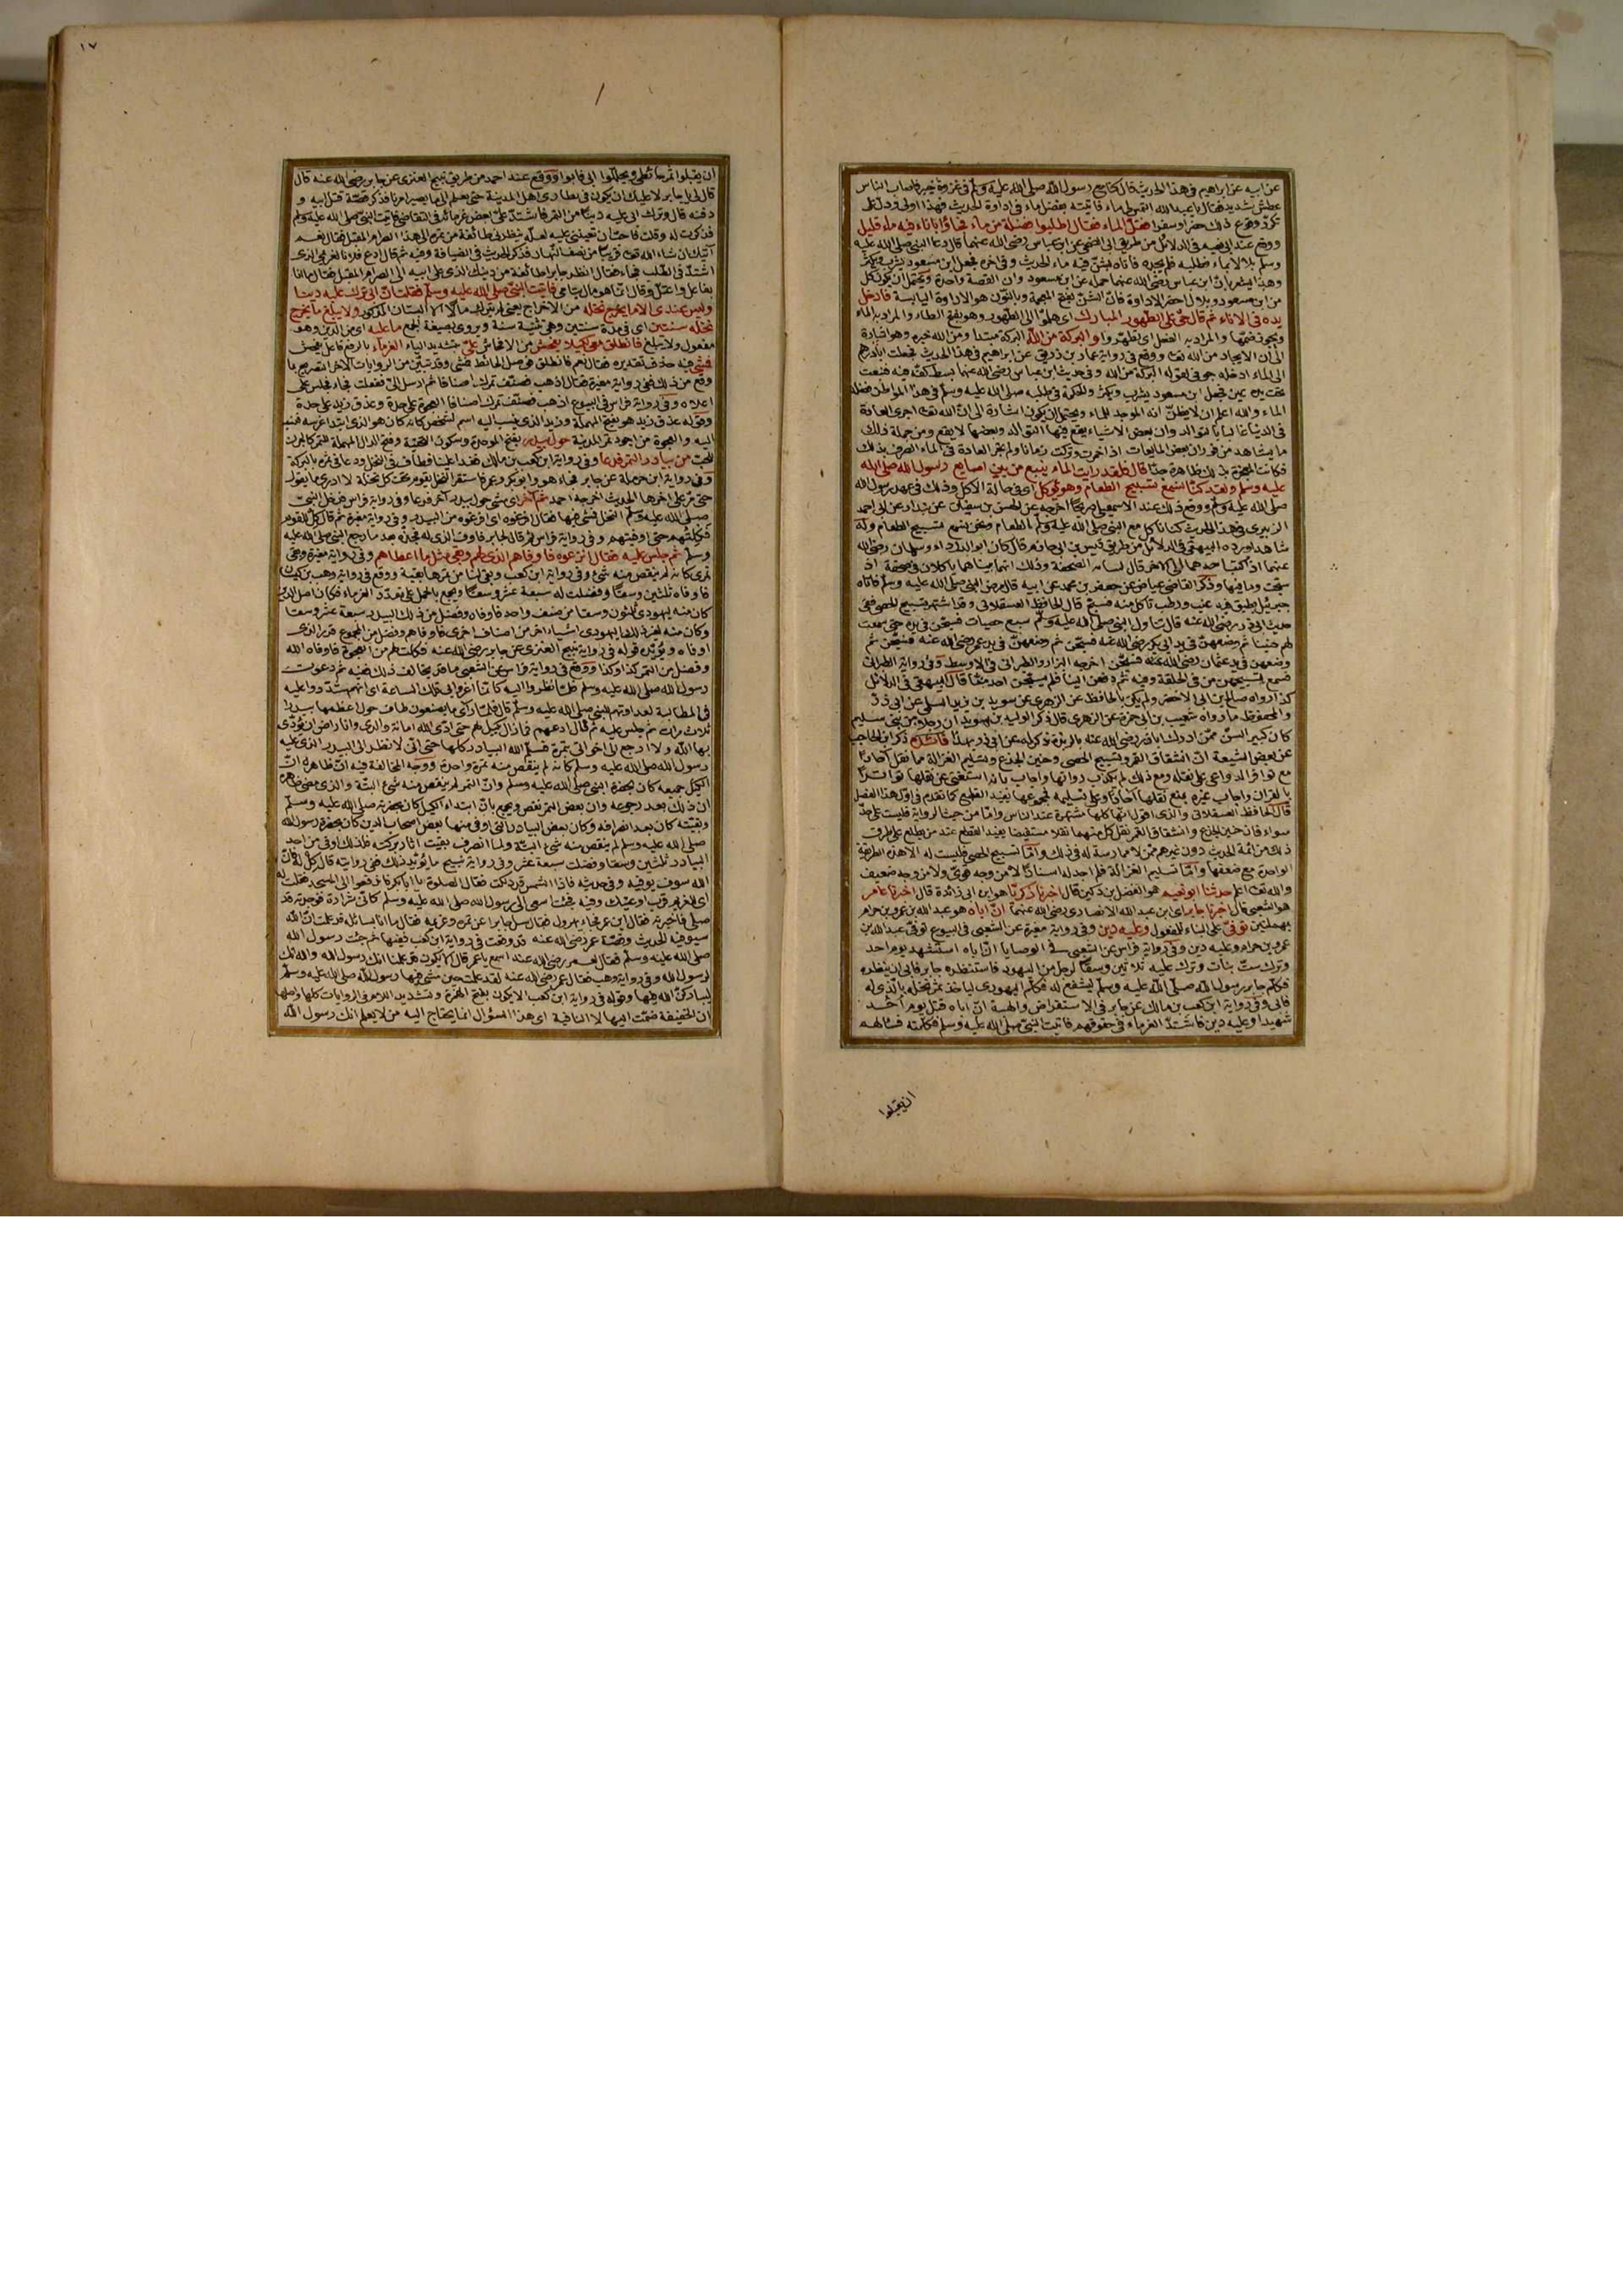 عن ابيه عن ابراهيم في هذا الحديث قال كنا مع رسول الله صلى الله عليه وسلم في غزوة خيبر فاصاب الناس
عطش شديد فقال يا عبد الله التمس لي ماء فاتيته بفضل ماء في اداوة الحديث فهذا اولى ودل على
تكرر وقوع ذلك حضرا وسفرا فقل الماء فقال اطلبوا فضلة من ماء فجاؤا باناء فيه ماء قليل
ووقع عند ابي نعيم في الدلائل من طريق ابي الضحى عن ابن عباس رضي الله عنهما قال دعا النبي صلى الله عليه
وسلم بلالا بماء فطلبه فلم يجده فاتاه بشن فيه ماء الحديث وفي اخره فجعل ابن مسعود يشرب ويكثر
وهذا يشعر بان ابن عباس رضي الله عنهما حمله عن ابن مسعود وان القصة واحدة ويحتمل ان يكون كل
من ابن مسعود وبلال احضر الاداوة فان الشن بفتح المعجمة وبالنون هو الاداوة اليابسة فادخل
يده في الاناء ثم قال حي على الطهور المبارك اي هلموا الى الطهور وهو بفتح الطاء والمراد به الماء
ويجوز ضمها والمراد به الفعل اي تطهروا والبركة من الله البركة مبتدا ومن الله خبره وهو اشارة
الى ان الايجاد من الله تعالى ووقع في رواية عمار بن زريق عن ابراهيم في هذا الحديث فجعلت ابادرهم
الى الماء ادخله جوفي لقوله البركة من الله وفي حديث ابن عباس رضي الله عنهما بسط كفه فيه فنبعت
تحت يده عين فجعل ابن مسعود يشرب ويكثر والحكمة في طلبه صلى الله عليه وسلم في هذا المواطن فضلة
الماء والله اعلم ان لا يظن انه الموجد للماء ويحتمل ان يكون اشارة الى ان الله تعالى اجرى العادة
في الدنيا غالبا بالتوالد وان بعض الاشياء يقع فيها التوالد وبعضها لا يقع ومن جملة ذلك
ما يشاهد من فوران بعض المايعات اذا خمرت وتركت زمانا ولم تجر العادة في الماء الصرف بذلك
فكانت المعجزة بذلك ظاهرة جدا قال فلقد رايت الماء ينبع من بين اصابع رسول الله صلى الله
عليه وسلم ولقد كنا نسمع تسبيح الطعام وهو يؤكل اي في حالة الاكل وذلك في عهد رسول الله
صلى الله عليه وسلم ووقع ذلك عند الاسمعيلي صريحا اخرجه عن الحسن بن سفيان عن بندار عن ابي احمد
الزبيري في هذا الحديث كنا ناكل مع النبي صلى الله عليه وسلم الطعام ونحن نسمع تسبيح الطعام وله
شاهد اورده البيهقي في الدلائل من طريق قيس بن ابي حازم قال كان ابو الدرداء وسلمان رضي الله
عنهما اذ كتب احدهما الى الاخر قال له باية الصحفة وذلك انهما بينا هما ياكلان في صحفة اذ
سبحت وما فيها وذكر القاضي عياض عن جعفر بن محمد عن ابيه قال مرض النبي صلى الله عليه وسلم فاتاه
جبرئيل بطبق فيه عنب ورطب فاكل منه فسبح قال الحافظ العسقلاني وقد اشتهر تسبيح الحصى ففي
حديث ابي ذر رضي الله عنه قال تناول النبي صلى الله عليه وسلم سبع حصيات فسبحن في يده حتى سمعت
لهن حنينا ثم وضعهن في يد ابي بكر رضي الله عنه فسبحن ثم وضعهن في يد عمر رضي الله عنه فسبحن ثم
وضعهن في يد عثمان رضي الله عنه فسبحن اخرجه البزار والطبراني في الاوسط وفي رواية الطبراني
فسمع تسبيحهن من في الحلقة وفيه ثم دفعهن الينا فلم يسبحن احد منا قال البيهقي في الدلائل
كذا رواه صالح بن ابي الاخضر ولم يكن بالحافظ عن الزهري عن سويد بن يزيد السلمي عن ابي ذر
والمحفوظ ما رواه شعيب بن ابي حمزة عن الزهري قال ذكر الوليد بن سويد ان رجلا من بني سليم
كان كبير السن ممن ادرك ابا ذر رضي الله عنه بالربذة ذكر له عن ابي ذر بهذا فائدة ذكر ابن الحاجب
عن بعض الشيعة ان انشقاق القمر وتسبيح الحصى وحنين الجذع وتسليم الغزالة مما نقل آحادا
مع توافر الدواعي على نقله ومع ذلك لم يكذب رواتها واجاب بانه استغنى عن نقلها تواترا
بالقران واجاب غيره بمنع نقلها آحادا وعلى تسليمه فمجموعها يفيد القطع كما تقدم في اول هذا الفصل
قال الحافظ العسقلاني والذي اقول انها كلها مشتهرة عند الناس واما من حيث الرواية فليست على حد
سواء فان حنين الجذع وانشقاق القمر نقل كل منهما نقلا مستفيضا يفيد القطع عند من يطلع على طرق
ذلك من ائمة الحديث دون غيرهم ممن لا ممارسة له في ذلك واما تسبيح الحصى فليست له الا هذه الطريقة
الواحدة مع ضعفها واما تسليم الغزالة فلم اجد له اسنادا لا من وجه قوي ولا من وجه ضعيف
والله تعالى اعلم حدثنا ابو نعيم هو الفضل بن دكين قال اخبرنا زكريا هو ابن ابي زائدة قال اخبرنا عامر
هو الشعبي قال اخبرنا جابر اي ابن عبد الله الانصاري رضي الله عنهما ان اباه هو عبد الله بن عمرو بن حرام
بهملتين توفي على البناء للمفعول وعليه دين وفي رواية مغيرة عن الشعبي في البيوع توفي عبد الله بن
عمرو بن حرام وعليه دين وفي رواية فراس عن الشعبي في الوصايا ان اباه استشهد يوم احد
وترك ست بنات وترك عليه ثلاثين وسقا لرجل من اليهود فاستنظره جابر فابى ان ينظره
فكلم جابر رسول الله صلى الله عليه وسلم ليشفع له فكلم اليهودي لياخذ ثمر نخله بالذي له
فابى وفي رواية ابن كعب بن مالك عن جابر في الاستقراض والهبة ان اباه قتل يوم احد
شهيدا وعليه دين فاشتد الغرماء في حقوقهم فاتيت النبي صلى الله عليه وسلم فكلمته فسألهم
ان يقبلوا
١٧
ان يقبلوا ثمر حائطي ويحللوا ابي فابوا ووقع عند احمد من طريق نبيح العنزي عن جابر رضي الله عنه قال
قال لي يا جابر لا عليك ان يكون في نظاري اهل المدينة حتى تعلم الى ما يصير امرنا فذكر قصة قتل ابيه و
دفنه قال وترك ابي عليه دينا من التمر فاشتد علي بعض غرمائه في التقاضي فاتيت النبي صلى الله عليه وسلم
فذكرت له وقلت فاحب ان تعينني عليه لعله ينظرني طائفة من تمره الى هذا الصرام المقبل فقال نعم
آتيك ان شاء الله تعالى قريبا من نصف النهار فذكر الحديث في الضيافة وفيه ثم قال ادع فلانا لغريمي الذي
اشتد في الطلب فجاء فقال انظر جابرا طائفة من دينك الذي على ابيه الى الصرام المقبل فقال ما انا
بفاعل واعتل وقال انما هو مال يتامى فاتيت النبي صلى الله عليه وسلم فقلت ان ابي ترك عليه دينا
وليس عندي الا ما يخرج نخله من الاخراج يعني لم يترك مالا الا البستان المذكور ولا يبلغ ما يخرج
نخله سنتين اي في مدة سنتين وهي تثنية سنة ويروى بصيغة الجمع ما عليه اي من الدين وهو
مفعول ولا يبلغ فانطلق معي لكيلا يفحش من الافحاش علي بتشديد الياء الغرماء بالرفع فاعل يفحش
فمشى فيه حذف تقديره فقال نعم فانطلق فوصل الحائط فمشى وقد تبين من الروايات الاخر التصريح بما
وقع من ذلك ففي رواية مغيرة فقال اذهب فصنف تمرك اصنافا ثم ارسل الي ففعلت فجاء فجلس على
اعلاه وفي رواية فراس في البيوع اذهب فصنف تمرك اصنافا العجوة على حدة وعذق زيد على حدة
وقوله عذق زيد هو بفتح المهملة وزيد الذي نسب اليه اسم لشخص كانه كان هو الذي ابتدا غرسه فنسب
اليه والعجوة من اجود تمر المدينة حول بيدر بفتح الموحدة وسكون التحتية وفتح الدال المهملة للتمر كالجرن
للحب من بيادر التمر فدعا وفي رواية ابن كعب بن مالك فغدا علينا فطاف في النخل ودعا في ثمره بالبركة
حتى مر على اخرها الحديث اخرجه احمد ثم آخر اي مشى حول بيدر آخر فدعا وفي رواية فراس فدخل النبي
صلى الله عليه وسلم النخل فمشى فيها فقال افرغوه اي افرغوه من البيدر وفي رواية مغيرة ثم قال كل للقوم
فكلتهم حتى اوفيتهم وفي رواية فراس ثم قال لجابر جد فاوف الذي له فجده بعد ما رجع النبي صلى الله عليه
وسلم ثم جلس عليه فقال انزعوه فاوفاهم الذي لهم وبقي مثل ما اعطاهم وفي رواية مغيرة وبقي
تمري كانه لم ينقص منه شئ وفي رواية ابن كعب وبقي لنا من ثمرها بقية ووقع في رواية وهب بن كيسان
فاوفاه ثلثين وسقا وفضلت له سبعة عشر وسقا ويجمع بالحمل على تعدد الغرماء فكان اصل الدين
كان منه ليهودي ثلثون وسقا من صنف واحد فاوفاه وفضل من ذلك البيدر سبعة عشر وسقا
وكان منه لغير ذلك اليهودي اشياء اخر من اصناف اخرى فاوفاهم وفضل من المجموع قدر الذي
اوفاه ويؤيده قوله في رواية نبيح العنزي عن جابر رضي الله عنه فكلت له من العجوة فاوفاه الله
وفضل من التمر كذا وكذا ووقع في رواية فراس عن الشعبي ما قد يخالف ذلك ففيه ثم دعوت
رسول الله صلى الله عليه وسلم فلما نظروا اليه كانما أغروا بي تلك الساعة اي انهم شددوا عليه
في المطالبة لعداوتهم للنبي صلى الله عليه وسلم قال فلما رآى ما يصنعون طاف حول اعظمها بيدرا
ثلاث مرات ثم جلس عليه ثم قال ادعهم فما زال يكيل لهم حتى ادى الله امانة والدي وانا راض ان تؤدى
بها الله ولا ارجع الى اخواتي بتمرة فسلم الله البيادر كلها حتى اني لانظر الى البيدر الذي عليه
رسول الله صلى الله عليه وسلم كانه لم ينقص منه تمرة واحدة ووجه المخالفة فيه ان ظاهره ان
الكيل جميعه كان بحضرة النبي صلى الله عليه وسلم وان التمر لم ينقص منه شئ البتة والذي مضى ظاهره
ان ذلك بعد رجوعه وان بعض التمر نقص ويجمع بان ابتداء الكيل كان بحضرته صلى الله عليه وسلم
وبقيته كان بعد انصرافه وكان بعض البيادر التي اوفى منها بعض اصحاب الدين كان بحضرة رسول الله
صلى الله عليه وسلم لم ينقص منه شئ البتة ولما انصرف بقيت آثار بركته فلذلك اوفى من احد
البيادر ثلثين وسقا وفضلت سبعة عشر وفي رواية نبيح ما يؤيد ذلك ففي روايته قال كل له فان
الله سوف يوفيه وفي حديثه فاذا الشمس قد دلكت فقال الصلوة يا ابا بكر فاندفعوا الى المسجد فقلت له
اي للغريم قرب اوعيتك وفيه فجئت اسعى الى رسول الله صلى الله عليه وسلم كاني شرارة فوجدته قد
صلى فاخبرته فقال اين عمر فجاء يهرول فقال سل جابرا عن تمره وغريمه فقال ما انا بسائله قد علمت ان الله
سيوفيه الحديث وقصة عمر رضي الله عنه قد وقعت في رواية ابن كعب ففيها ثم جئت رسول الله
صلى الله عليه وسلم فقال لعمر رضي الله عنه اسمع يا عمر قال الا يكون قد علمنا انك رسول الله والله انك
لرسول الله وفي رواية وهب فقال عمر رضي الله عنه لقد علمت حين مشى فيها رسول الله صلى الله عليه وسلم
ليباركن الله فيها وقوله في رواية ابن كعب الا يكون بفتح الهمزة وتشديد اللام في الروايات كلها واصلها
ان الخفيفة ضمت اليها لا النافية اي هذا السؤال انما يحتاج اليه من لا يعلم انك رسول الله